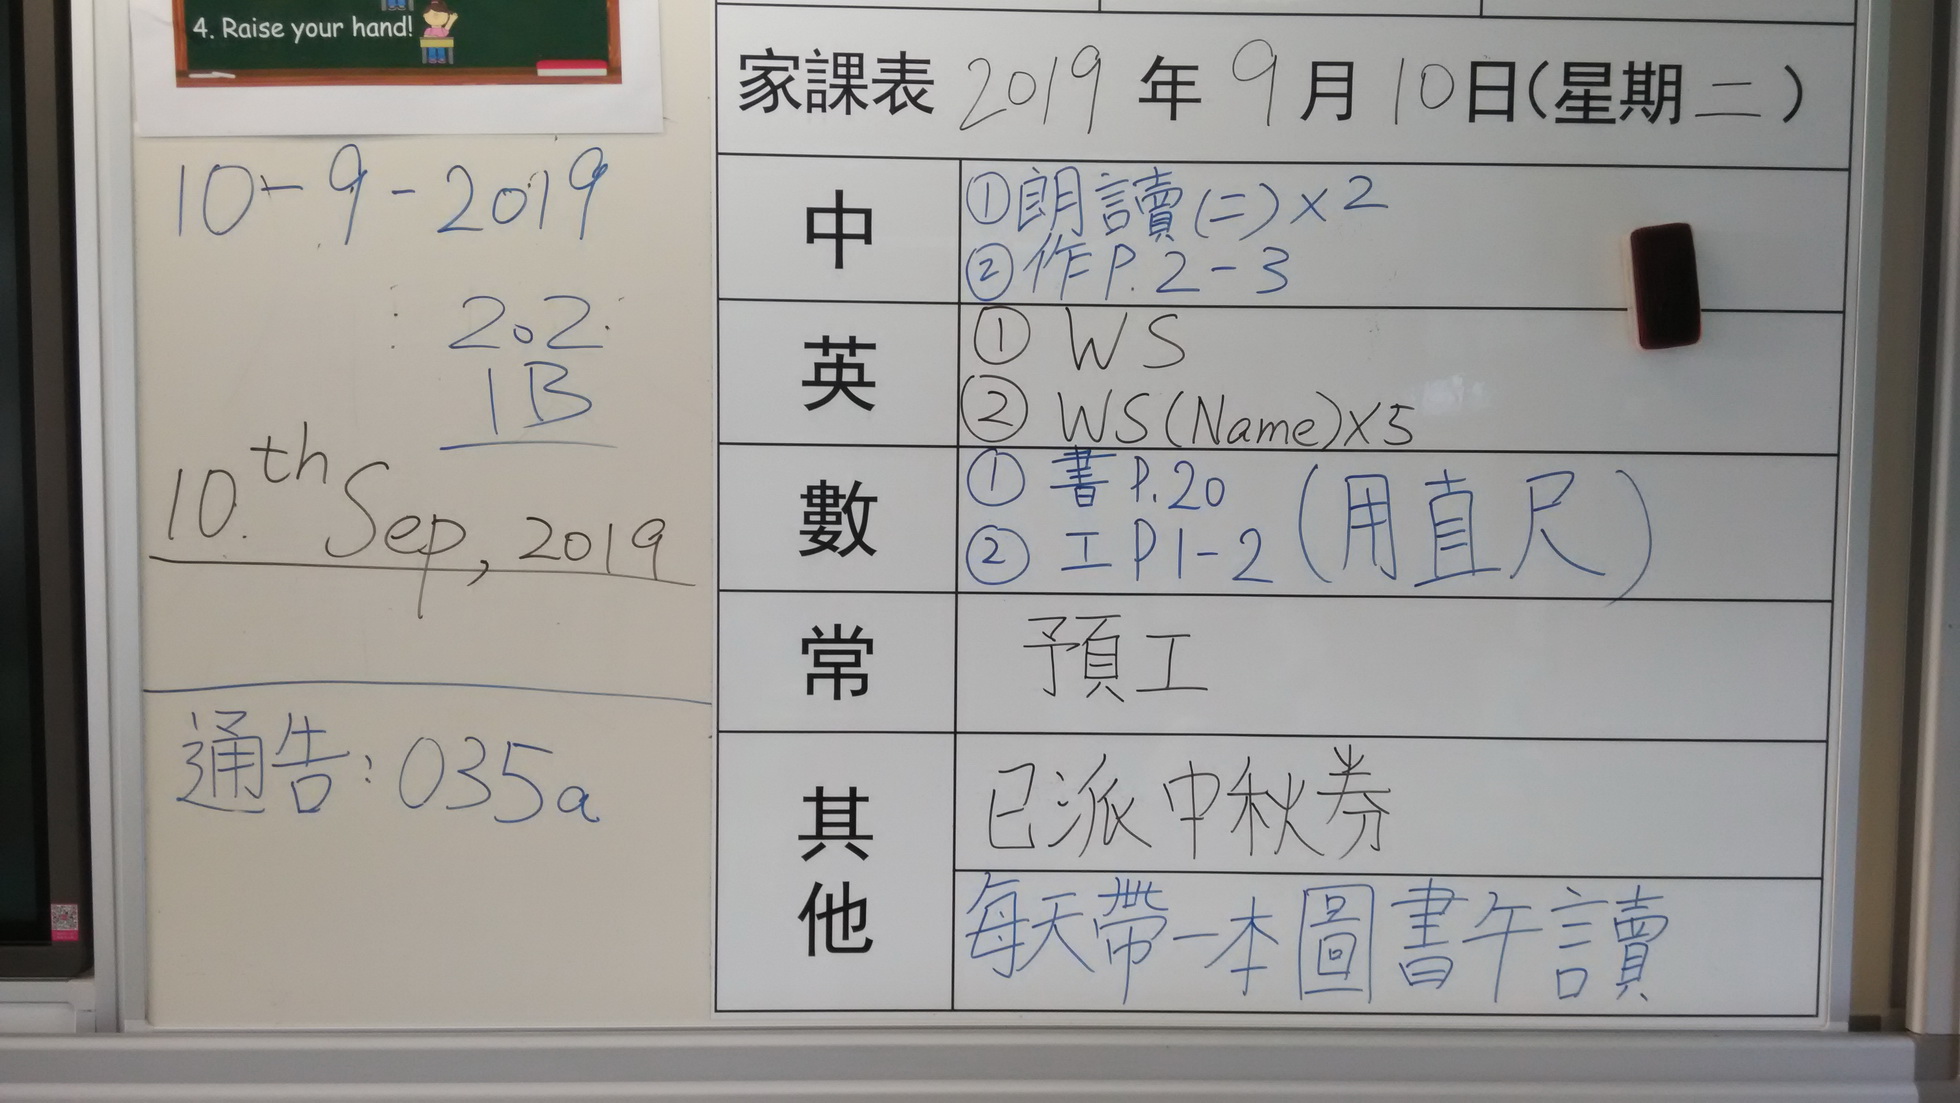 4. Raise your hand!
10-9-2019
202
1B
10th Sep, 2019
通告:035a
家課表 2019年9月10日(星期二)
中
①朗讀(二)×2
②作P.2-3
英
① WS
② WS(Name)×5
數
① 書P.20
② 工P1-2 (用直尺)
常
預工
其他
已派中秋券
每天帶一本圖書午讀